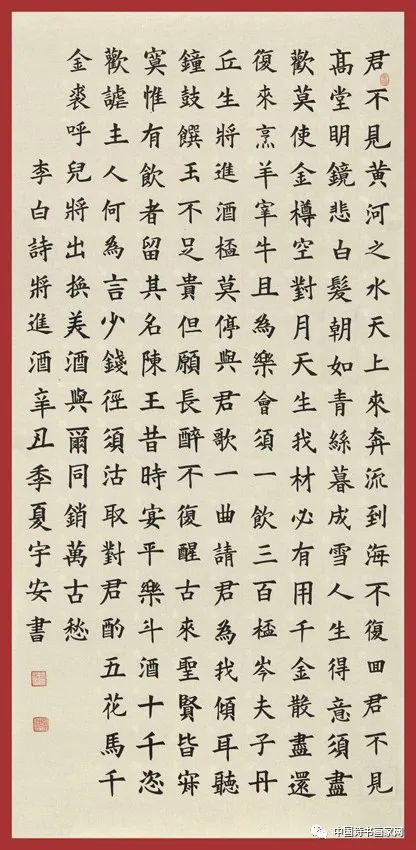 君不見黃河之水天上來奔流到海不復回君不見
高堂明鏡悲白髮朝如青絲暮成雪人生得意須盡
歡莫使金樽空對月天生我材必有用千金散盡還
復來烹羊宰牛且為樂會須一飲三百桮岑夫子丹
丘生將進酒桮莫停與君歌一曲請君為我傾耳聽
鐘鼓饌玉不足貴但願長醉不復醒古來聖賢皆寂
寞惟有飲者留其名陳王昔時宴平樂斗酒十千恣
歡謔主人何為言少錢徑須沽取對君酌五花馬千
金裘呼兒將出換美酒與爾同銷萬古愁
李白詩將進酒辛丑季夏宇安書
中国诗书画家网